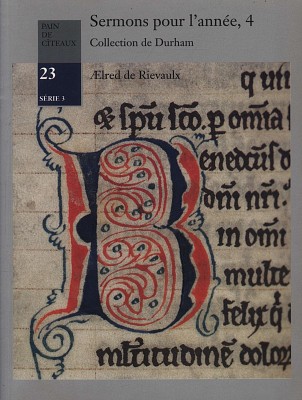 PAIN
DE
CÎTEAUX
23
SÉRIE 3
Sermons pour l'année, 4
Collection de Durham
Ælred de Rievaulx
q uiu
& spu sco. p omia
Benedictus d
dm nri.
in omi
multe
felix q
multitudine dolor